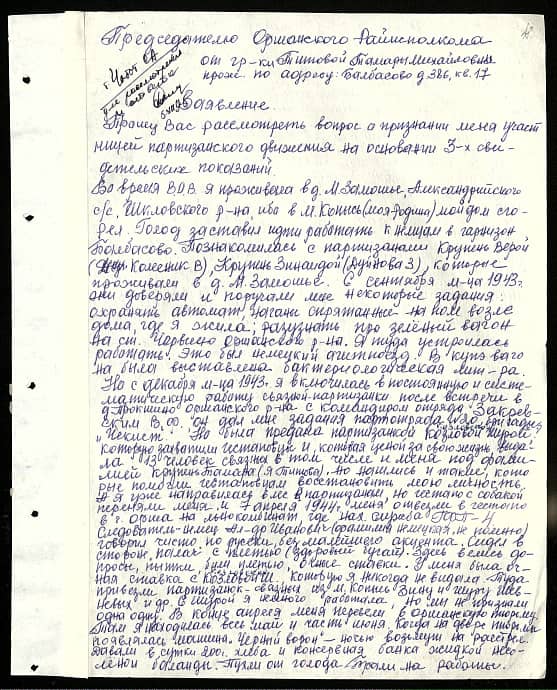 Председателю Оршанского Райисполкома
от гр-ки Титовой Тамары Михайловны
прож. по адресу: Балбасово д 386, кв. 17
Заявление.
Прошу Вас рассмотреть вопрос о признании меня участ
ницей партизанского движения на основании 3-х сви-
детельских показаний.
Во время В.О.В. я проживала в д. М. Замошье. Александрийского
с/с, Шкловского р-на, ибо в М. Копысь (моя родина) мой дом сго-
рел. Голод заставил идти работать к немцам в гарнизон
Балбасово. Познакомилась с партизанами Крупень Верой
Колесник В), Крупень Зинаидой (Дунова З), которые
проживали в д. М. Замошье. С сентября м-ца 1943г.
они доверяли и поручали мне некоторые задания:
охранять автомат, наганы спрятанные на поле возле
дома, где я жила; разузнать про зелёный вагон
на ст. Червено Оршанского р-на. Я туда устроилась
работать. Это был немецкий агитпоезд. В купе ваго
на была выставлена бактериологическая лит-ра.
Но с декабря м-ца 1943г. я включилась в постоянную и систе-
матическую работу связной-партизанки после встречи в
д. Орошкино оршанского р-на с командиром отряда Закрев-
ским В.Ф. он дал мне задания партотряда бригады
"Чекист". Но была предана партизанкой Козловой Шурой
которую захватили гестаповцы и, которая ценой за свою жизнь выда-
ла 19 человек связных в том числе и меня под фами-
лией Крупень Тамара (я Титова). Но нашлись и такие, кото
рые помогли гестаповцам восстановить мою личность.
А я уже направилась в лес в партизаны, но гестапо с собакой
переняли меня и 7 апреля 1944г. меня отвезли в гестапо
в г. Орша на льнокомбинат, где нах. служба ГФП-4
Следователь-немец Ал-др Иванович (фамилия немецкая, не помню)
говорил чисто по русски, без малейшего акцента. Сидел в
стороне, полак с плетью (здоровый бугай). Здесь велись до-
просы, пытки, били плетью, очные ставки. У меня была оч-
ная ставка с Козловой, которую я никогда не видала. Туда
привезли партизанок-связных из М. Копысь Зину и Шуру
и др. С Шурой я немного работала, но мы не признали
одна одну. В конце апреля меня перевели в германскую тюрьму.
Там я находилась весь май и часть июня. Когда на дворе тюрьмы
появлялась машина "Черный ворон" – ночью возили на расстрел.
Давали в сутки 200г. хлеба и консервная банка жидкой несо-
лёной баланды. Пухли от голода. Брали на работы.